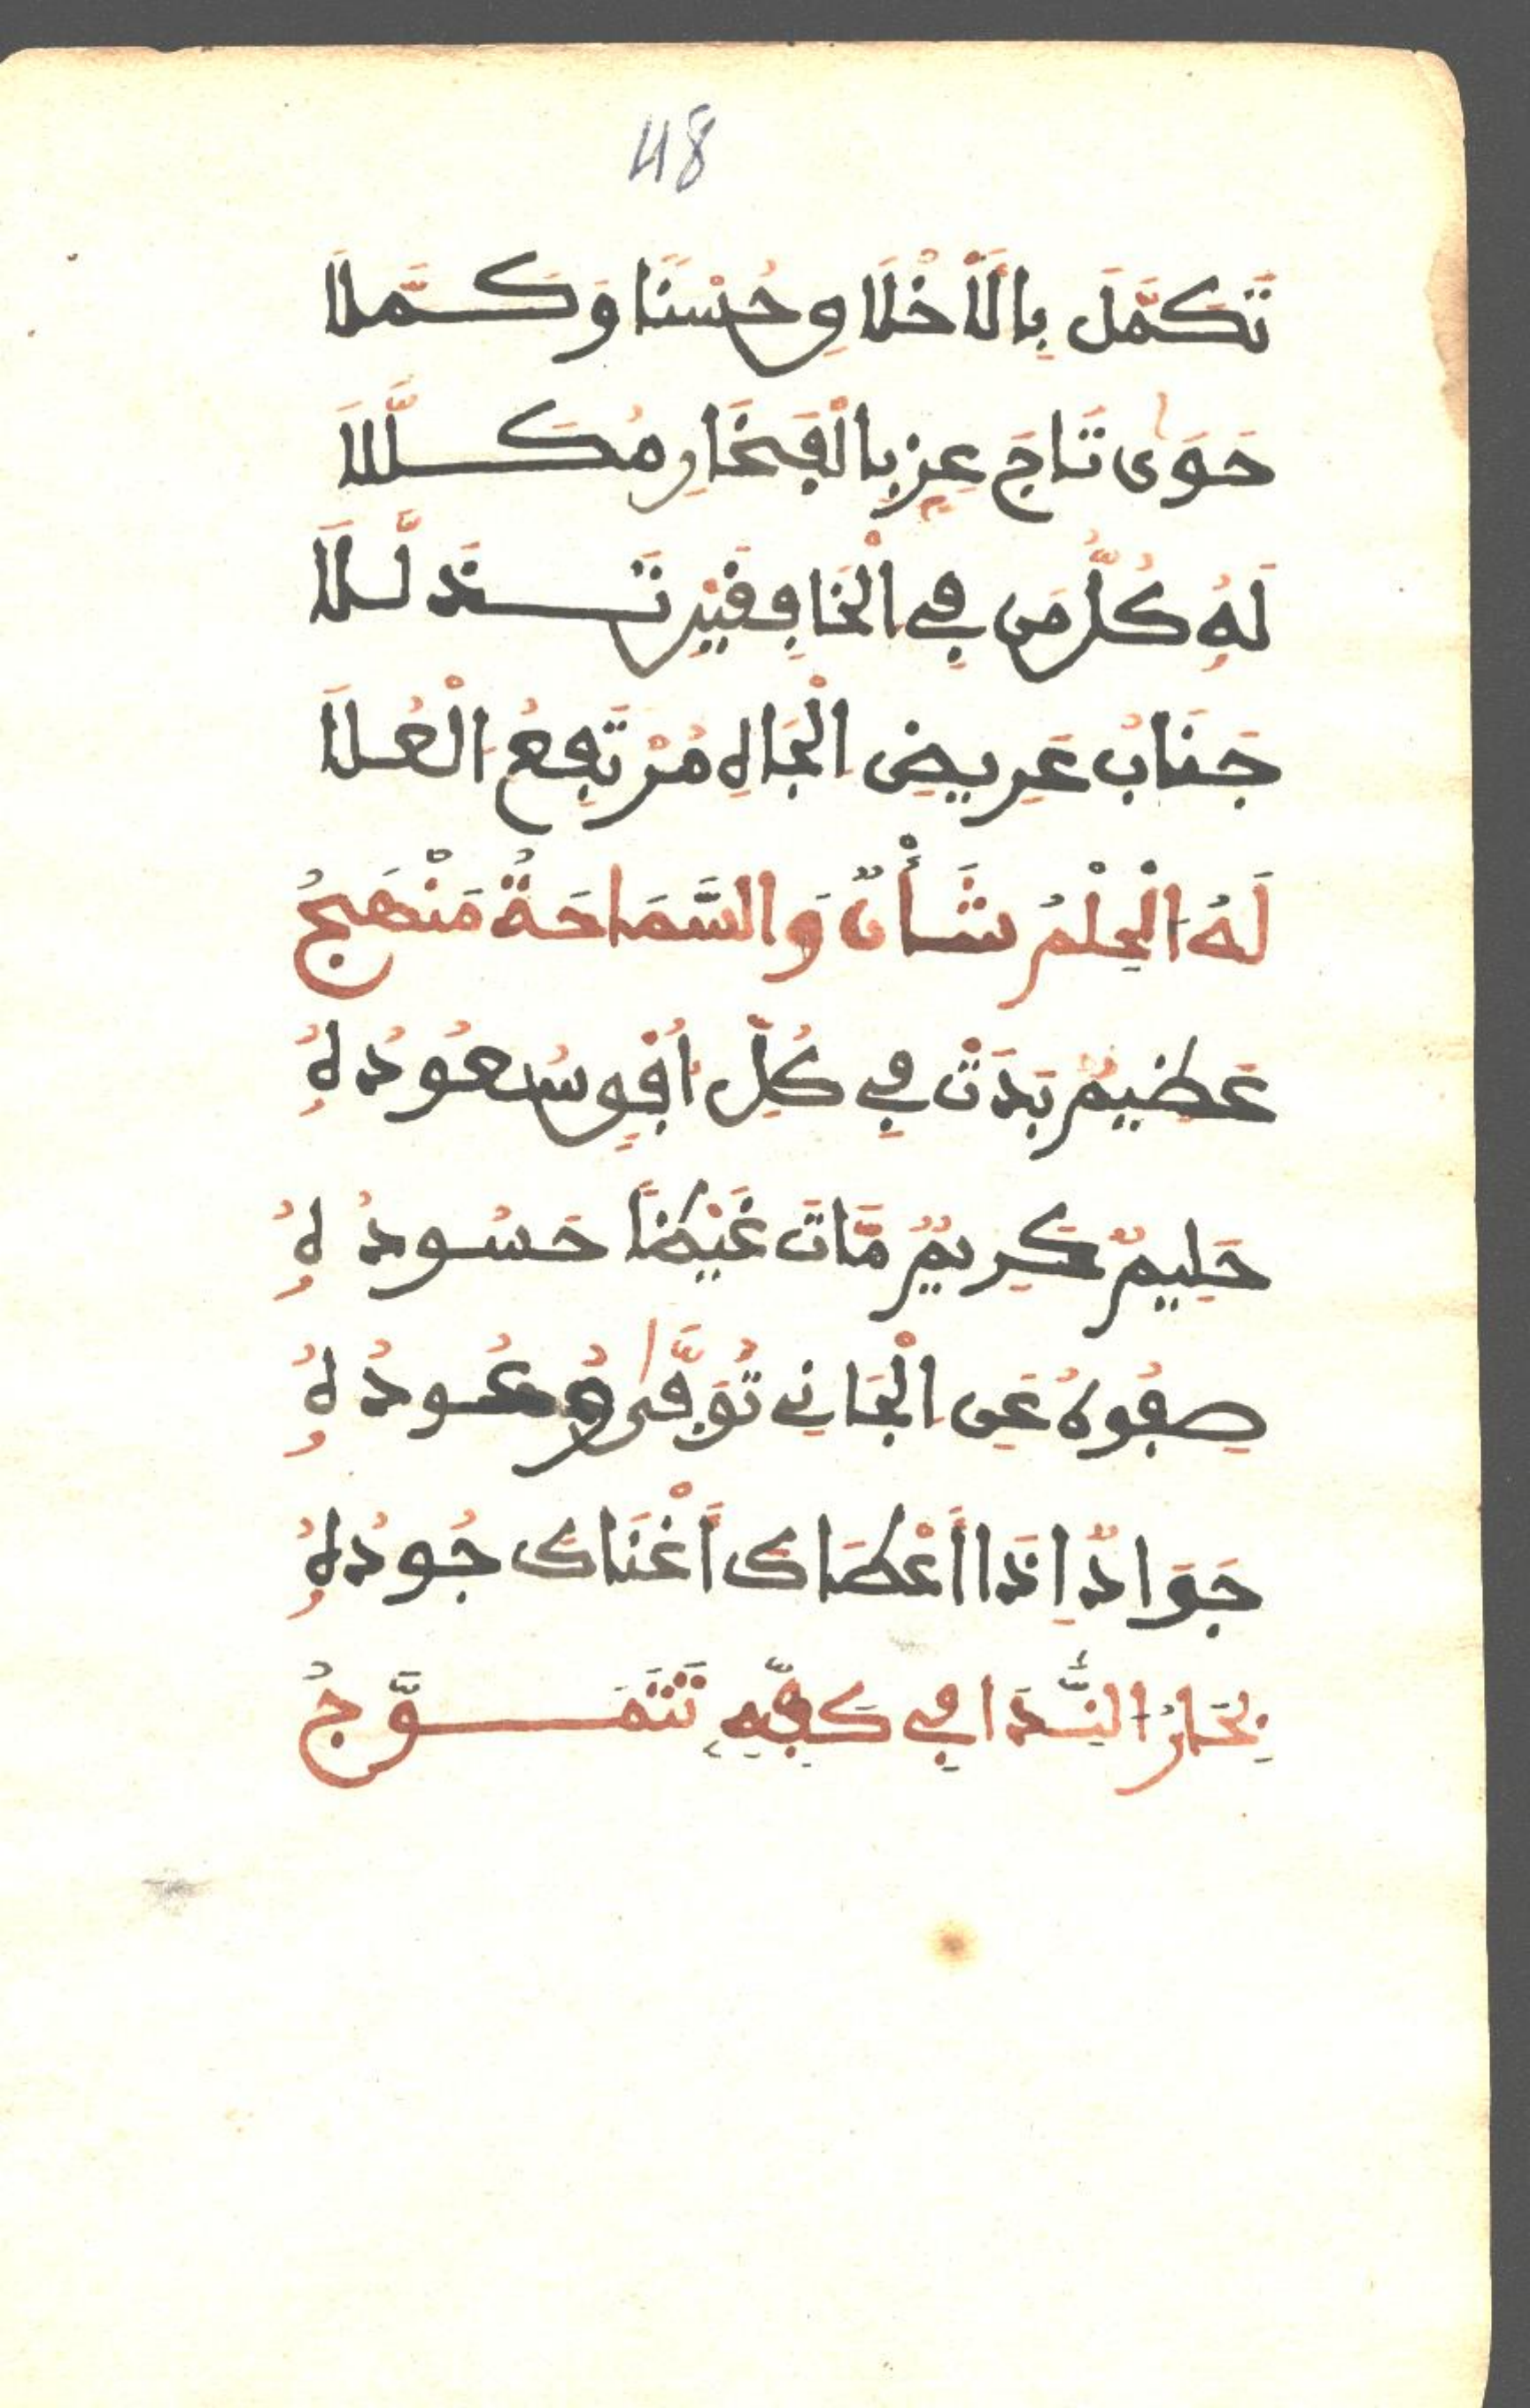 48
تَكَمَّلَ بِالَاَخْلَاقِ حُسْنًا وَكَمَّلَا
حَوَىٰ تَاجَ عِزٍّ بِالْفِخَارِ مُكَلَّلَا
لَهُ كُلُّ مَن فِي الْخَافِقَيْنِ تَذَلَّلَا
جَنَابُ عَرِيضِ الْجَاهِ مُرْتَفِعُ الْعُلَا
لَهُ الْحِلْمُ شَأْنٌ وَالسَّمَاحَةُ مَنْهَجُ
عَظِيمٌ بَدَتْ فِي كُلِّ اُفْقٍ سُعُودُهُ
حَلِيمٌ كَرِيمٌ مَّاتَ غَيْظًا حَسُودُهُ
صِفُوهُ عَنِ الْجَانِي تُوَفَّىٰ وُعُودُهُ
جَوَادٌ اِذَا أَعْطَاكَ أَغْنَاكَ جُودُهُ
بِحَارُ النَّدَا فِي كَفِّهِ تَتَمَوَّجُ